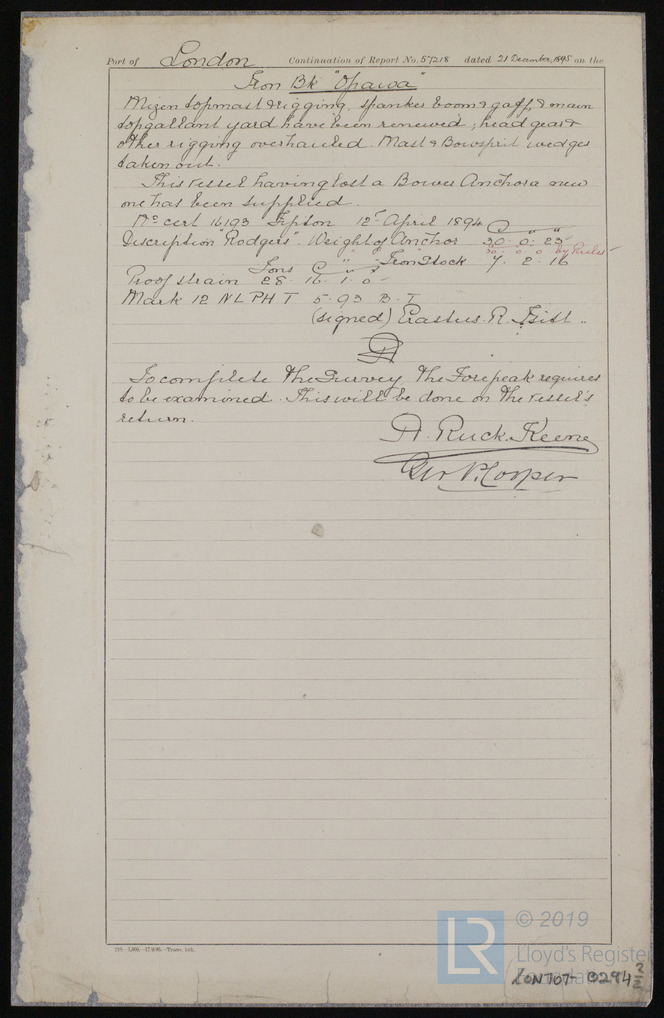 Port of London Continuation of Report No. 57218 dated 21 December 1895 on the
Iron Bk "Opawa"
Mizen topmast & rigging, spanker boom & gaff, & main
topgallant yard have been renewed; head gear &
other rigging overhauled. Mast & Bowsprit wedges
taken out.
This vessel having lost a Bower Anchor a new
one has been supplied.
No cert 16193 Tipton 12th April 1894 C " "
Discription "Rodgers". Weight of Anchor 30. 0. 25
30. 0. 0 by Rules
Iron Stock 7. 2. 16
Tons C " "
Proof strain 28. 16. 1. 0
Mark 12 NLPHT 5.93 B.T
(signed) Erastus. R.
To complete the Survey the Forepeak requires
to be examined. This will be done on the vessel's
return.
A. Ruck. Keene
Geo P. Cooper
© 2019
LR
Lloyd's Register
LON 707- 0294 2/2